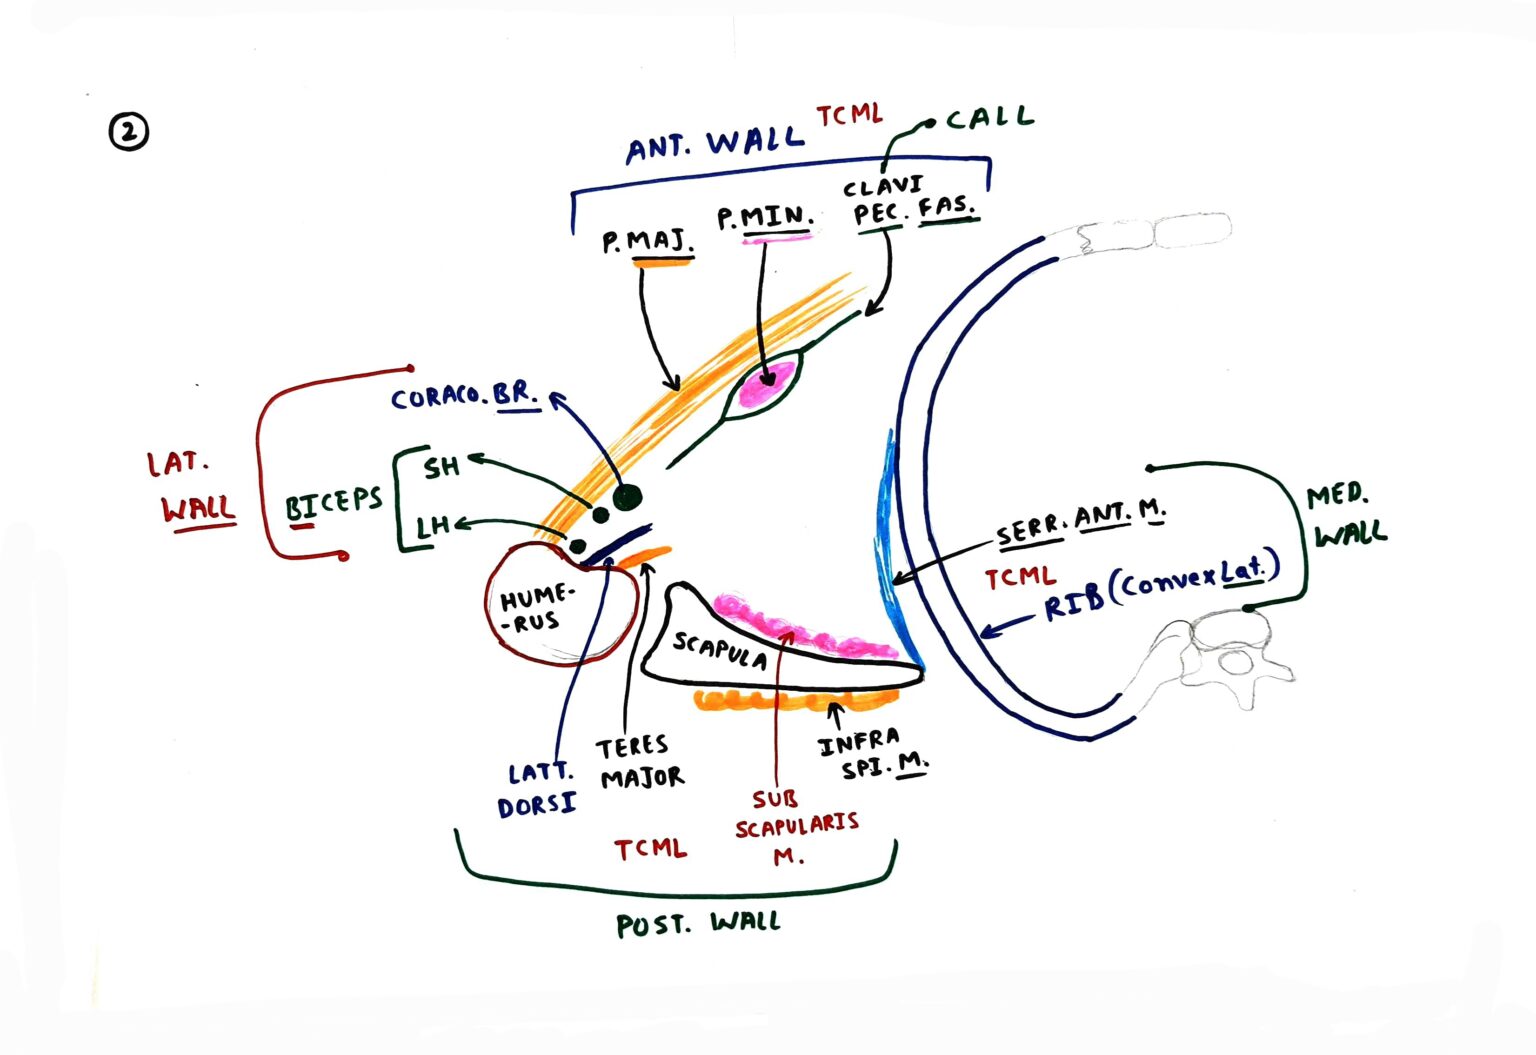 2
ANT. WALL
TCML
CALL
P. MAJ.
P. MIN.
CLAVI
PEC. FAS.
CORACO. BR.
LAT.
WALL
BICEPS
SH
LH
HUME-
-RUS
SCAPULA
SERR. ANT. M.
TCML
RIB (Convex Lat.)
MED.
WALL
LATT.
DORSI
TERES
MAJOR
INFRA
SPI. M.
SUB
SCAPULARIS
M.
TCML
POST. WALL